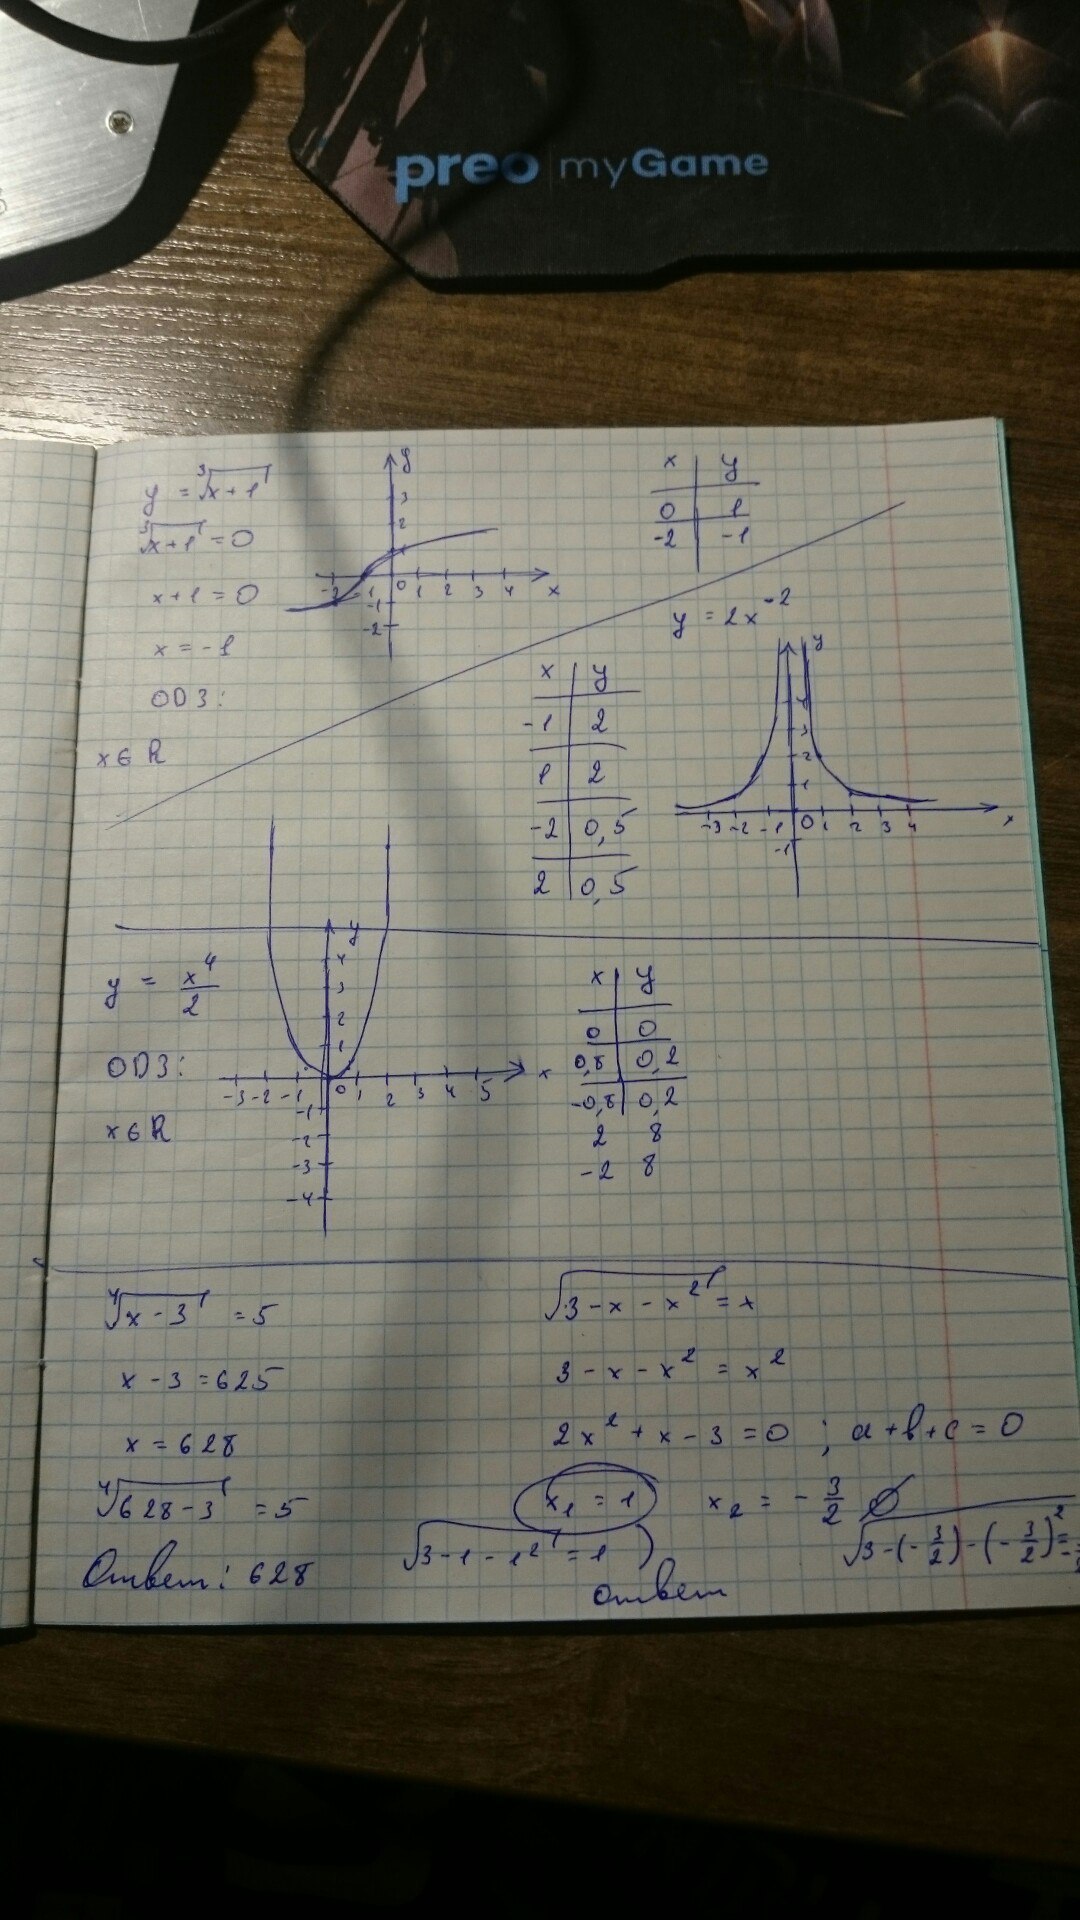 preo myGame
y = ∛(x+1)
∛(x+1) = 0
x+1 = 0
x = -1
ОДЗ:
x ∈ R
y
3
2
1
-2 -1 0 1 2 3 4 x
-1
-2
x y
0 1
-2 -1
y = 2x⁻²
x y
-1 2
1 2
-2 0,5
2 0,5
y
4
3
2
1
-3 -2 -1 0 1 2 3 4 x
-1
y = x⁴/2
ОДЗ:
x ∈ R
y
4
3
2
1
-3 -2 -1 0 1 2 3 4 5 x
-1
-2
-3
-4
x y
0 0
0,8 0,2
-0,8 0,2
2 8
-2 8
∜(x-3) = 5
x - 3 = 625
x = 628
∜(628-3) = 5
Ответ: 628
√(3-x-x²) = x
3 - x - x² = x²
2x² + x - 3 = 0 ; a+b+c = 0
x₁ = 1 x₂ = -3/2 ∅
√(3-1-1²) = 1 √(3-(-3/2)-(-3/2)²) =
ответ